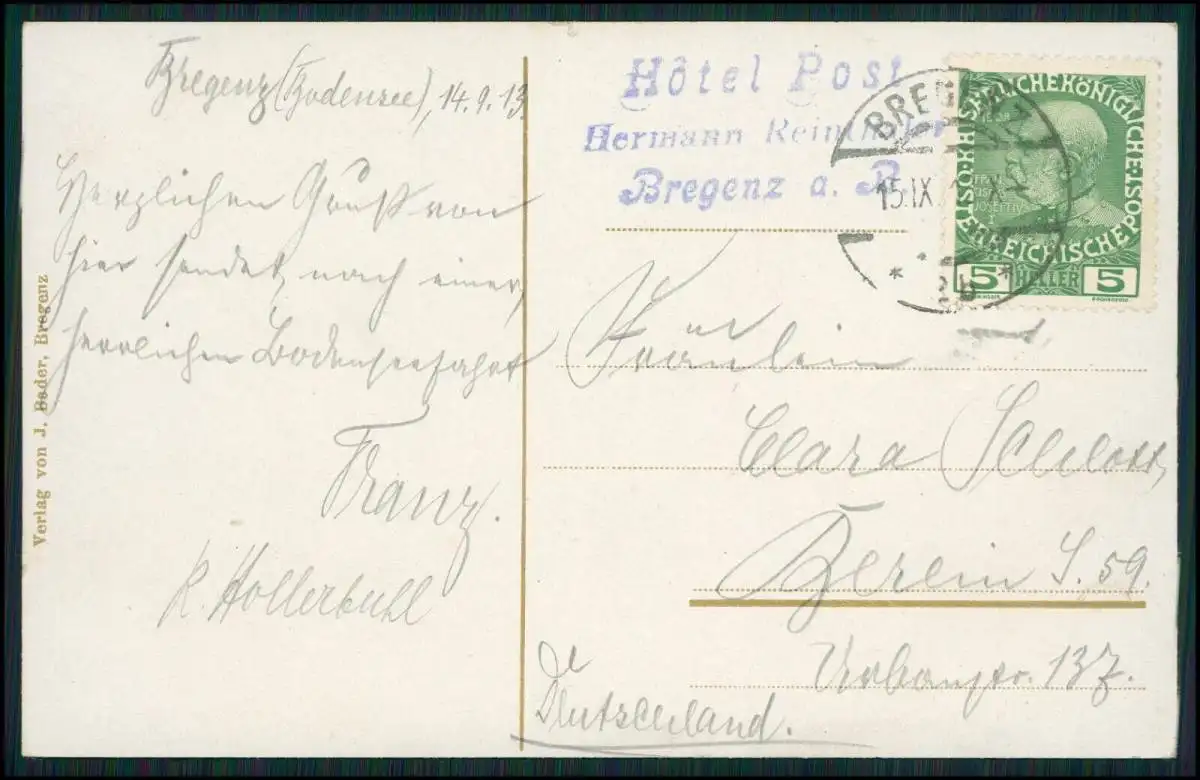 Bregenz (Bodensee), 14.9.13.
Herzlichen Gruß von
hier sendet nach einer
herrlichen Bodenseefahrt
Franz.
R. Hollerbuhl
Verlag von J. Bader, Bregenz
Hôtel Post
Hermann Reinthaler
Bregenz a. B.
BREGENZ
15.IX
* *
2b
KAISERLICHEKÖNIGLICHE·ÖSTERREICHISCHEPOST
5 HELLER 5
Fräulein
Clara Schlott
Berlin S. 59.
Urbanstr. 137.
Deutschland.